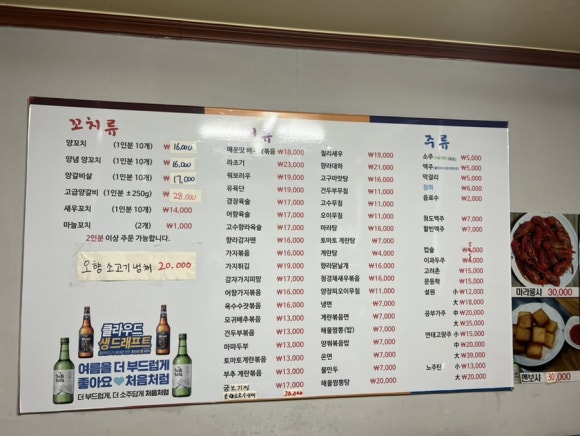 꼬치류
양꼬치 (1인분 10개) ₩16,000
양념 양꼬치 (1인분 10개) ₩16,000
양갈비살 (1인분 10개) ₩17,000
고급양갈비 (1인분 ±250g) ₩28,000
새우꼬치 (1인분 10개) ₩14,000
마늘꼬치 (2개) ₩1,000
2인분 이상 주문 가능합니다.
오향 소고기냉채 20.000
클라우드
생드래프트
여름을 더 부드럽게
좋아요 처음처럼
더 부드럽게, 더 소주답게 처음처럼
류
매운맛 볶음 ₩18,000
라조기 ₩23,000
꿔보러우 ₩19,000
유육단 ₩19,000
경장육슬 ₩19,000
어향육슬 ₩19,000
고수향라육슬 ₩19,000
향라감자펜 ₩16,000
가지볶음 ₩16,000
가지튀김 ₩19,000
감자가지피망 ₩17,000
어향가지볶음 ₩17,000
옥수수잣볶음 ₩16,000
모귀배추볶음 ₩16,000
건두부볶음 ₩16,000
마파두부 ₩13,000
토마토계란볶음 ₩13,000
부추 계란볶음 ₩13,000
₩17,000
20.000
칠리새우 ₩19,000
향라대하 ₩21,000
고구마맛탕 ₩16,000
건두부무침 ₩11,000
고수무침 ₩11,000
오이무침 ₩11,000
마라탕 ₩16,000
토마토 계란탕 ₩7,000
계란탕 ₩4,000
향라닭날개 ₩16,000
청경채새우볶음 ₩16,000
양장피오이무침 ₩16,000
냉면 ₩7,000
계란볶음면 ₩7,000
해물짬뽕(밥) ₩7,000
양꿔볶음밥 ₩7,000
온면 ₩7,000
물만두 ₩7,000
해물짬뽕탕 ₩20,000
주류
소주 ₩5,000
맥주 ₩5,000
막걸리 ₩5,000
청하 ₩6,000
음료수 ₩2,000
청도맥주 ₩7,000
하얼빈맥주 ₩7,000
컵술 ₩5,000
이과두주 ₩5,000
고려촌 ₩15,000
문등학 ₩15,000
설원 小 ₩12,000
大 ₩18,000
공부가주 中 ₩20,000
大 ₩35,000
연태고량주 小 ₩15,000
中 ₩20,000
大 ₩39,000
노주탄 小 ₩13,000
大 ₩20,000
마라롱샤 30,000
멘보샤 30,000